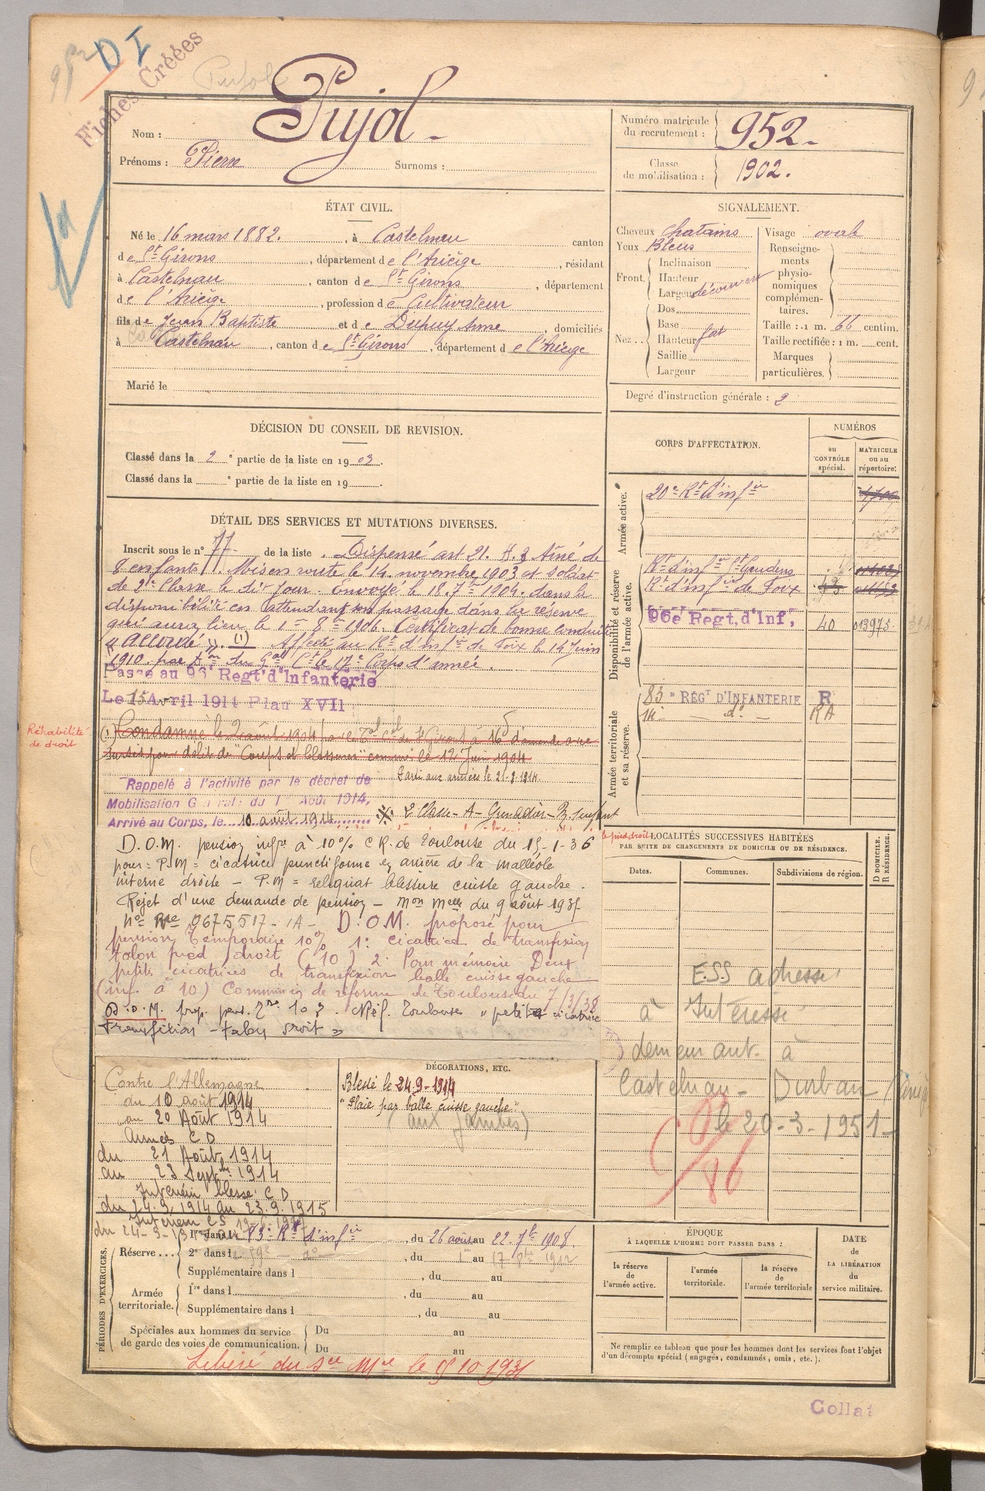 952
D I
Fiches Créées
Pujol
Nom : Pujol -
Prénoms : Pierre Surnoms :
Numéro matricule du recrutement : 952.
Classe de mobilisation : 1902.
ÉTAT CIVIL.
Né le 16 mars 1882. , à Castelnau canton
de St Girons , département de l'Ariège , résidant
à Castelnau , canton de St Girons , département
de l'Ariège , profession de Cultivateur
fils de Jean Baptiste et de Dupuy Anne , domiciliés
à Castelnau , canton de St Girons , département de l'Ariège
Marié le
SIGNALEMENT.
Cheveux chatains
Yeux Bleus
Front. Inclinaison
Hauteur
Largeur découvert
Nez.. Dos
Base
Hauteur fort
Saillie
Largeur
Visage ovale
Renseignements physionomiques complémentaires.
Taille : 1 m. 66 centim.
Taille rectifiée : 1 m. cent.
Marques particulières.
Degré d'instruction générale : 2
DÉCISION DU CONSEIL DE REVISION.
Classé dans la 2e partie de la liste en 1903.
Classé dans la e partie de la liste en 19 .
CORPS D'AFFECTATION.
NUMÉROS
au CONTRÔLE spécial.
MATRICULE ou au répertoire:
Armée active.
20e Rt d'Infie
Disponibilité et réserve de l'armée active.
Rt d'infie St Gaudens
Rt d'infie de Foix
96e Regt. d'Inf, 40 013975
Armée territoriale et sa réserve.
83e RÉGT D'INFANTERIE R
14 - d° - RA
DÉTAIL DES SERVICES ET MUTATIONS DIVERSES.
Inscrit sous le n° 77 de la liste . Dispensé art 21. Aîné de
8 enfants. Mis en route le 14 novembre 1903 et soldat
de 2e Classe le dit jour. Envoyé le 18 7bre 1904 dans la
disponibilité en attendant son passage dans la réserve
qui aura lieu le 1er 8bre 1906. Certificat de bonne conduite
"Accordé". (1) Affecté au Rt d'infie de Foix le 14 juin
1910 par don du Gal Ct le 17e Corps d'armée.
Passé au 96e Regt d'Infanterie
Le 15 Avril 1914 Plan XVII
Réhabilité de droit
(1) Condamné le 2 août 1904 par le St Girons à 16 d'amende avec
sursis pour délit de "Coups et blessures" commis le 12 juin 1904
Rappelé à l'activité par le décret de
Mobilisation Générale du 1er Août 1914,
Arrivé au Corps, le 10 août 1914
le 21.9.1914
D.O.M. pension infre à 10% CR. de Toulouse du 15-1-36
pour : P.M = cicatrice punctiforme en arrière de la malléole
interne droite - P.M = reliquat blessure cuisse gauche.
Rejet d'une demande de pension - mon du 9 août 1937
0675517 - 1A - D.O.M. proposé pour
pension temporaire 10% 1° cicatrice de transfixion
talon pied droit (10) 2° Pour mémoire Deux
petites cicatrices de transfixion balle cuisse gauche
(inf. à 10) Commission de réforme de Toulouse du 7/3/38
Toulouse "petite cicatrice
Transfixion - Talon droit"
LOCALITÉS SUCCESSIVES HABITÉES
PAR SUITE DE CHANGEMENTS DE DOMICILE OU DE RÉSIDENCE.
Dates. Communes. Subdivisions de région.
D DOMICILE. R RÉSIDENCE.
ESS adressé
à Intéressé
demeurant à
Castelnau - Durban
le 20-3-1951
Contre l'Allemagne
du 10 août 1914
au 20 Août 1914
Armées CD
du 21 Août 1914
au 23 Septbre 1914
Intérieur blessé CD
du 24.9.1914 au 23.9.1915
Intérieur CS
DÉCORATIONS, ETC.
Blessé le 24-9-1914
"Plaie par balle cuisse gauche"
(aux jambes)
PÉRIODES D'EXERCICES.
Réserve... 1re dans l 83e Rt d'infie , du 26 août au 22 7bre 1908.
2e dans l 59e d° , du 1er au 17 1912
Supplémentaire dans l , du au
Armée territoriale. 1re dans l , du au
Supplémentaire dans l , du au
Spéciales aux hommes du service de garde des voies de communication. Du au
Du au
Libéré du sce Mre le
ÉPOQUE
À LAQUELLE L'HOMME DOIT PASSER DANS :
la réserve de l'armée active.
l'armée territoriale.
la réserve de l'armée territoriale
DATE DE LA LIBÉRATION du service militaire.
Ne remplir ce tableau que pour les hommes dont les services font l'objet
d'un décompte spécial (engagés, condamnés, omis, etc.).
Collat